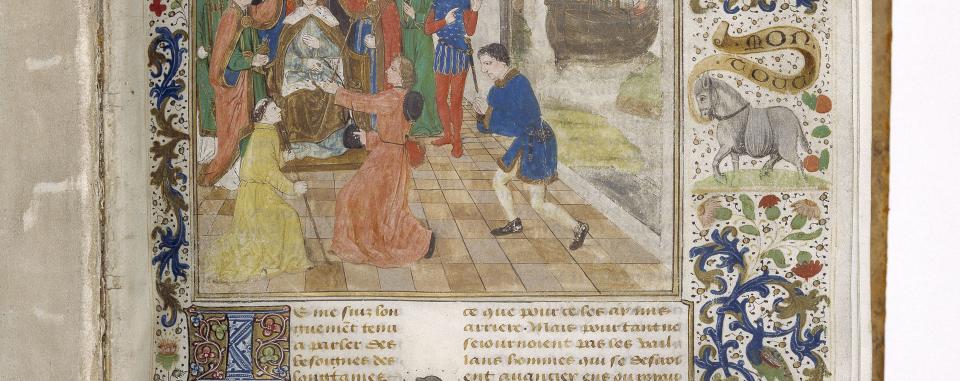 MON
TOUT
E me suiz lon
guement tenu
a parler des
besoingnes des
loingtaines
ce que pour ce les ay mis
arriere. Mais pour tant ne
seiournoient pas les vail
lans hommes qui se desiroi
ent avancier ens ou roiau